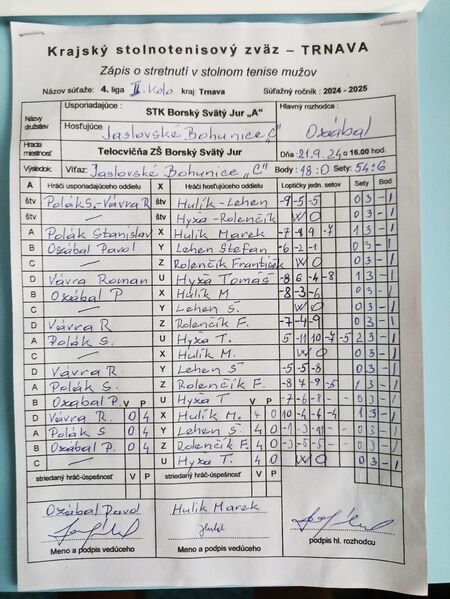 Krajský stolnotenisový zväz – TRNAVA
Zápis o stretnutí v stolnom tenise mužov
Názov súťaže: 4. liga II. kolo kraj: Trnava Súťažný ročník : 2024 - 2025
Názvy družstiev Usporiadajúce : STK Borský Svätý Jur „A“ Hlavný rozhodca :
Hosťujúce Jaslovské Bohunice „C“ Ožábal
Hracia miestnosť Telocvičňa ZŠ Borský Svätý Jur Dňa : 21.9.24 o 16.00 hod.
Výsledok: Víťaz: Jaslovské Bohunice „C“ Body : 18:0 Sety: 54:6
A Hráči usporiadajúceho oddielu X Hráči hosťujúceho oddielu Loptičky jedn. setov Sety Body
štv Polák S.-Vávra R štv Hulík-Lehen -9-5-5 0 3 -1
štv — štv Hyža-Rolenčík WO 0 3 -1
A Polák Stanislav X Hulík Marek -7-8 9 -7 1 3 -1
B Ožábal Pavol Y Lehen Štefan -6-2-1 0 3 -1
C — Z Rolenčík František WO 0 3 -1
D Vávra Roman U Hyža Tomáš -8 6-4-8 1 3 -1
B Ožábal P. X Hulík M -8-3-6 0 3 -1
C — Y Lehen Š. WO 0 3 -1
D Vávra R Z Rolenčík F. -7-4-9 0 3 -1
A Polák S. U Hyža T. 5-11 10-7-5 2 3 -1
C — X Hulík M. WO 0 3 -1
D Vávra R. Y Lehen Š -5-5-8 0 3 -1
A Polák S. Z Rolenčík F. -8 7-9-5 1 3 -1
B Ožábal P. V P U Hyža T V P -7-4-6 0 3 -1
D Vávra R. 0 4 X Hulík M. 4 0 10-4-6-4 1 3 -1
A Polák S 0 4 Y Lehen Š 4 0 0 3 -1
B Ožábal P. 0 4 Z Rolenčík F. 4 0 -3-5-5 0 3 -1
C — U Hyža T. 4 0 WO 0 3 -1
striedaný hráč-úspešnosť V P striedaný hráč-úspešnosť V P
Ožábal Pavol Hulík Marek
Meno a podpis vedúceho Meno a podpis vedúceho podpis hl. rozhodcu